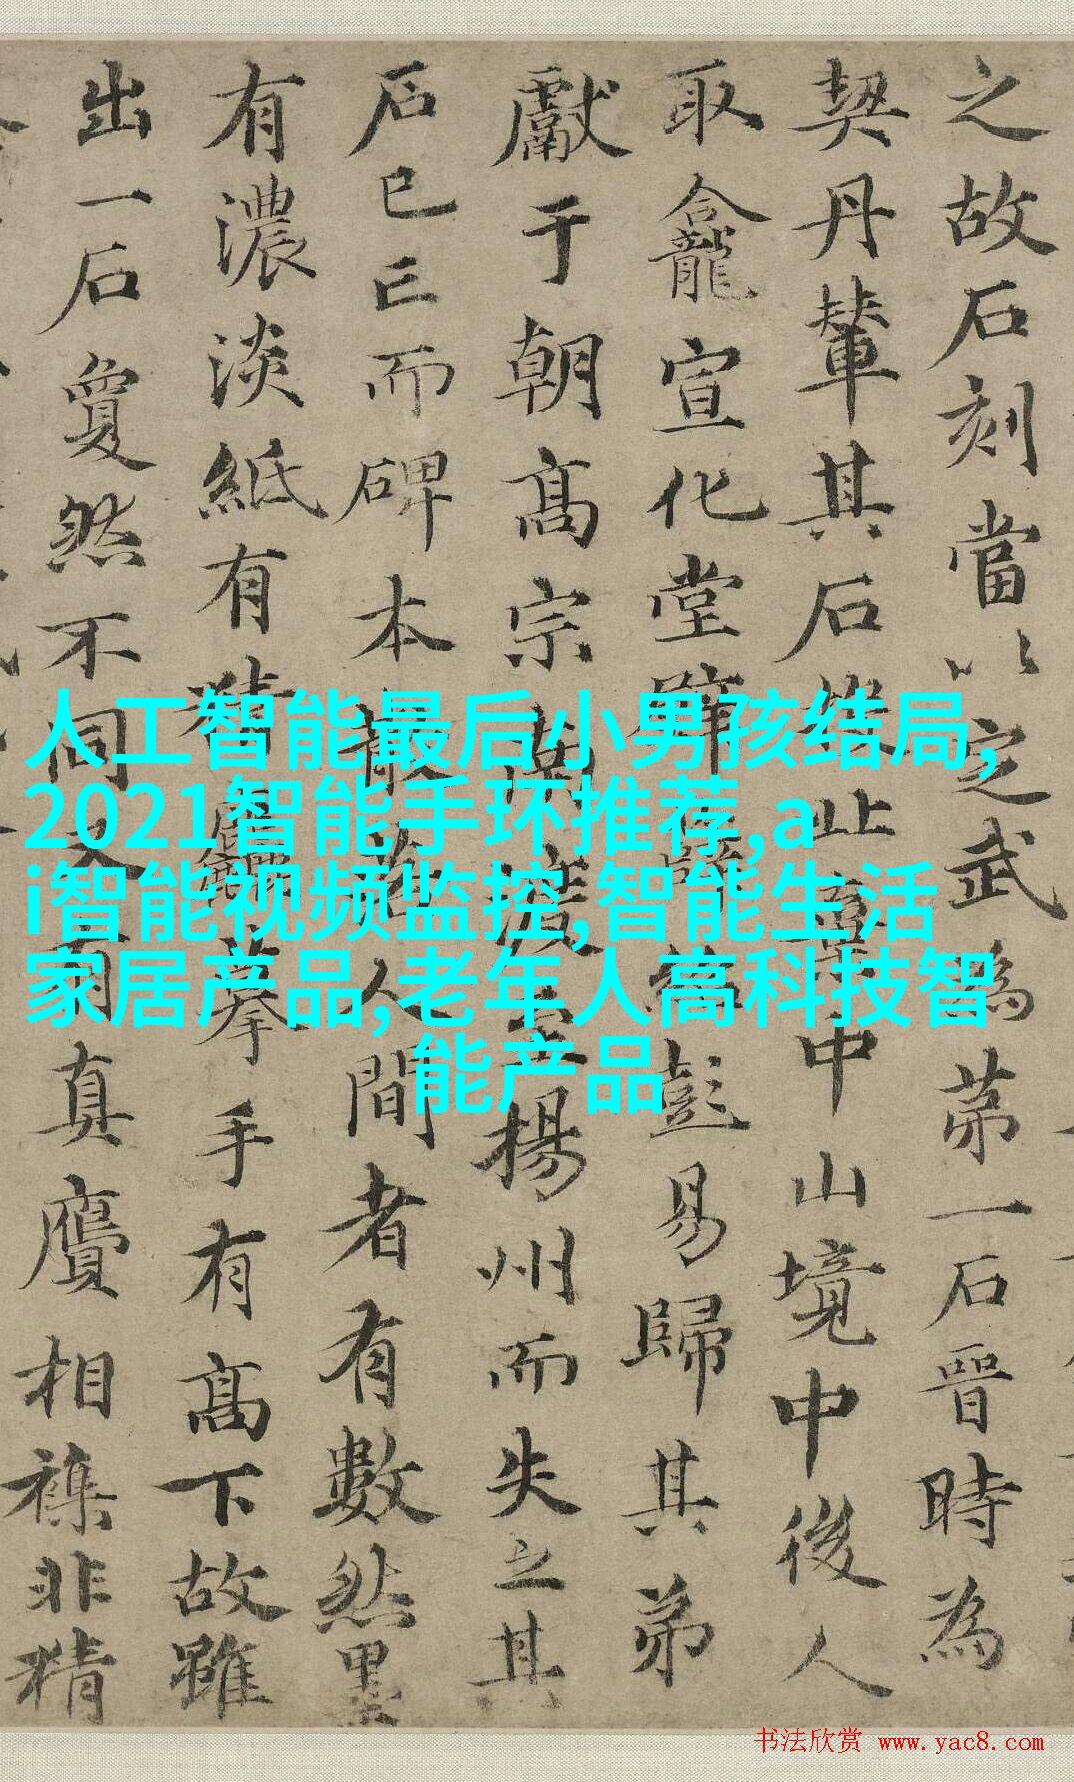 之故石刻當以定武為苐一石晉時為
契丹輦其石止中山境中後人
取龕宣化堂彭易歸其弟
獻于朝髙宗渡揚州而失之其
石已亡而碑本散人間者有數然墨
有濃淡紙有精麤摹手有髙下故雖
出一石夐然不同真贗相襍非精
人工智能最后小男孩结局,
2021智能手环推荐,a
i智能视频监控,智能生活
家居产品,老年人高科技智
能产品
书法欣赏 www.yac8.com